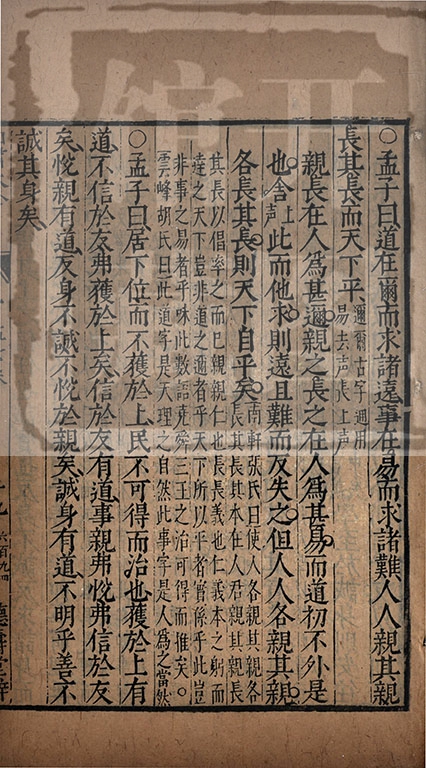 ○孟子曰道在爾而求諸遠事在易而求諸難人人親其親
長其長而天下平
邇爾古字通用
易去声長上声
親長在人為甚邇親之長之在人為甚易而道初不外是
也舍上声此而他求則遠且難而反失之但人人各親其親
各長其長則天下自平矣
南軒張氏曰使人各親其親各
長其長其本在人君親其親長
其長以倡率之而已親親仁也長長義也仁義本之躬而
達之天下豈非道之邇者乎天下所以平者實係乎此豈
非事之易者乎味此數語堯舜三王之治可得而推矣○
雲峰胡氏曰此道字是天理之自然此事字是人為之當然
○孟子曰居下位而不獲於上民不可得而治也獲於上有
道不信於友弗獲於上矣信於友有道事親弗悅弗信於友
矣悅親有道反身不誠不悅於親矣誠身有道不明乎善不
誠其身矣
六百九四